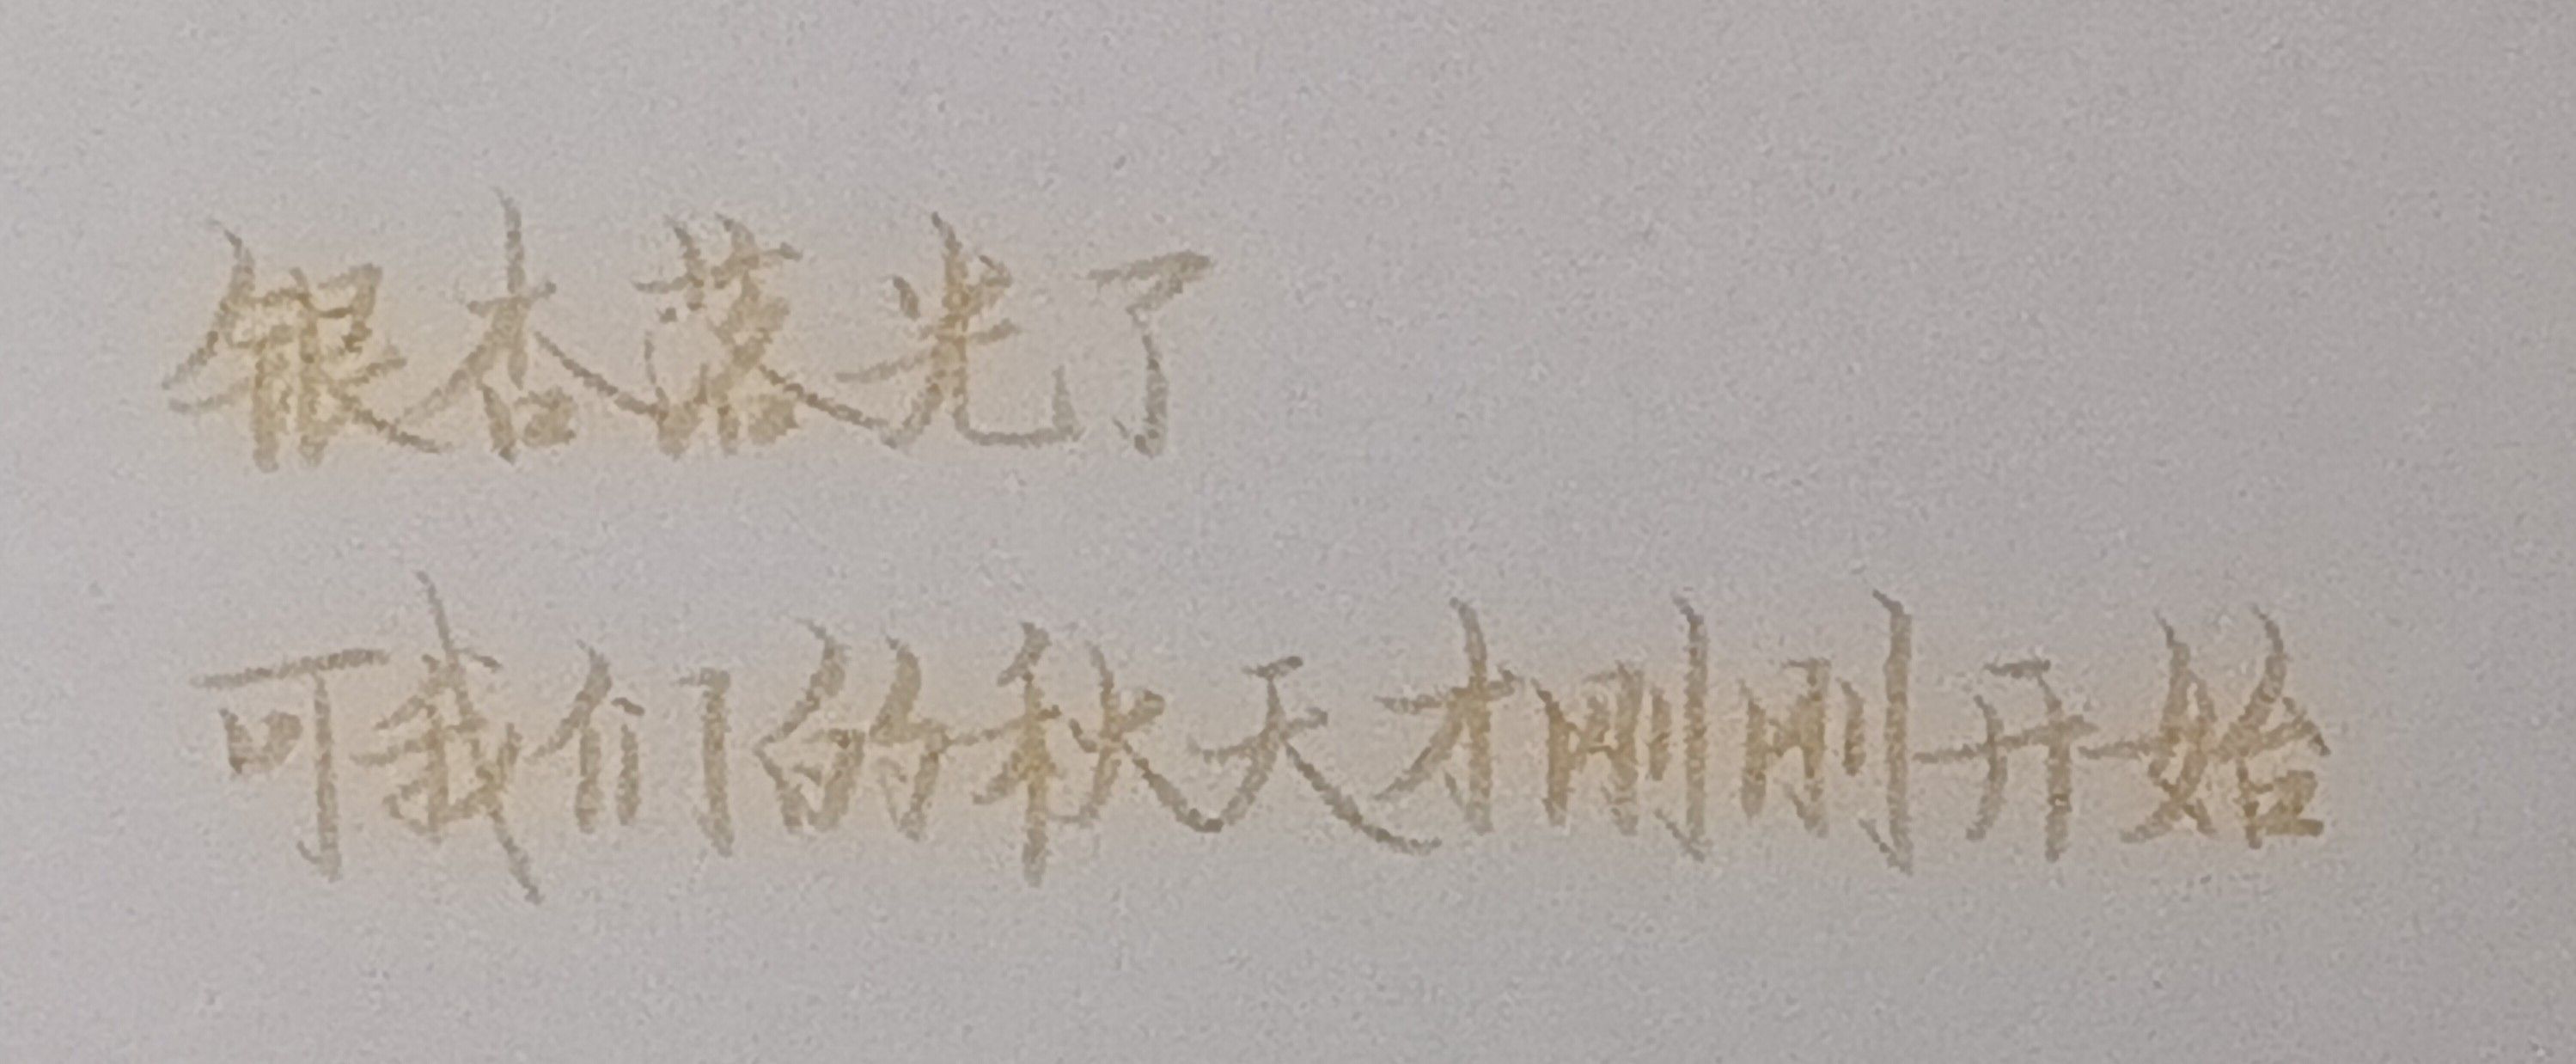 银杏落光了
可我们的秋天才刚刚开始